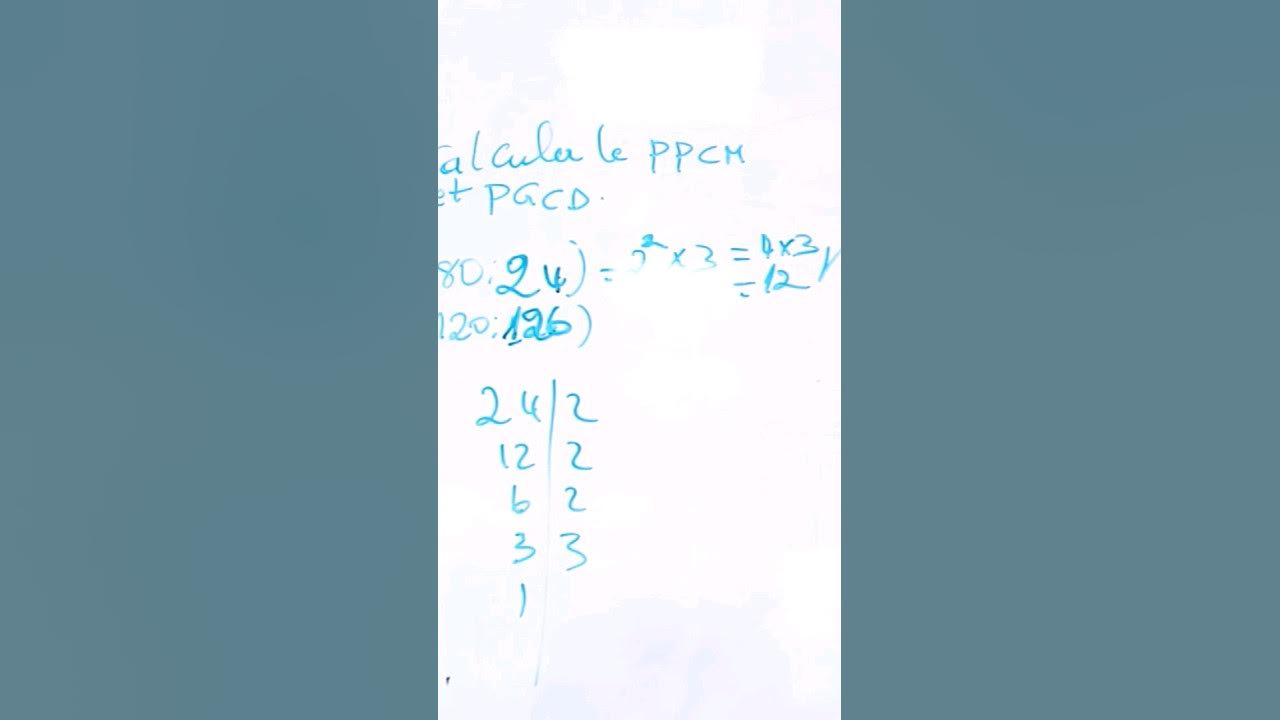 Calculer le PPCM
et PGCD.
80; 24) = 2² × 3 = 4×3
= 12
120; 126)
24 | 2
12 | 2
6 | 2
3 | 3
1